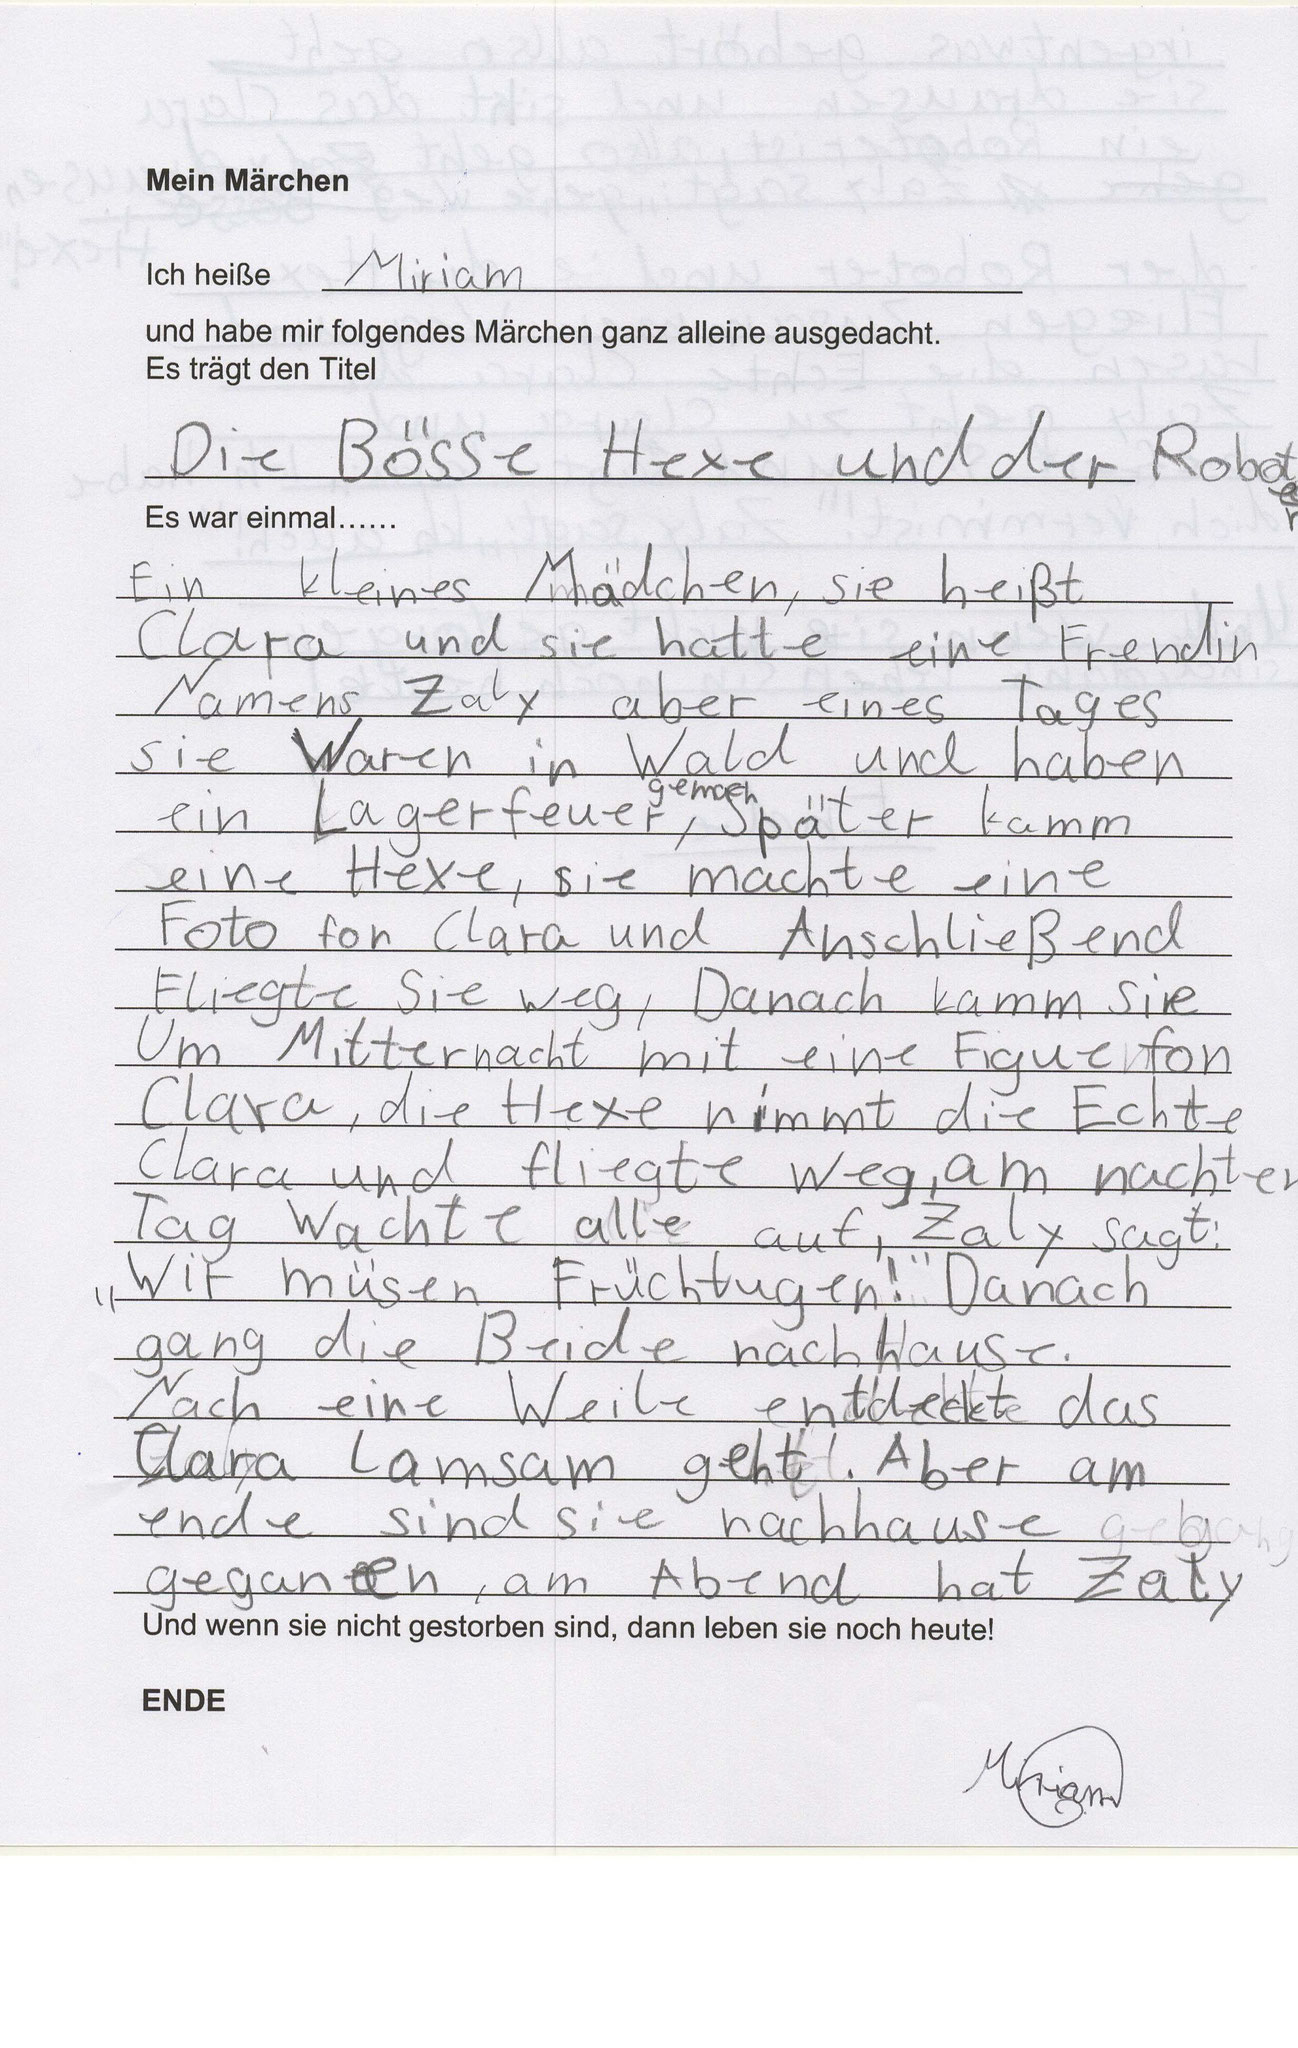 Mein Märchen
Ich heiße Miriam
und habe mir folgendes Märchen ganz alleine ausgedacht.
Es trägt den Titel
Die Bösse Hexe und der Roboter
Es war einmal......
Ein kleines Mädchen, sie heißt
Clara und sie hatte eine Frendin
Namens Zaly aber eines Tages
sie Waren in Wald und haben
ein Lagerfeuer gemach, Später kamm
eine Hexe, sie machte eine
Foto fon Clara und Anschließend
Fliegte Sie weg, Danach kamm sie
Um Mitternacht mit eine Figue fon
Clara, die Hexe nimmt die Echte
Clara und fliegte weg, am nachten
Tag Wachte alle auf, Zaly sagt:
"Wir müsen Früchtugen!" Danach
gang die Beide nach Hause.
Nach eine Weile entdeckte das
Clara Lamsam geht. Aber am
ende sind sie nachhause
geganen, am Abend hat Zaly
Und wenn sie nicht gestorben sind, dann leben sie noch heute!
ENDE
Miriam